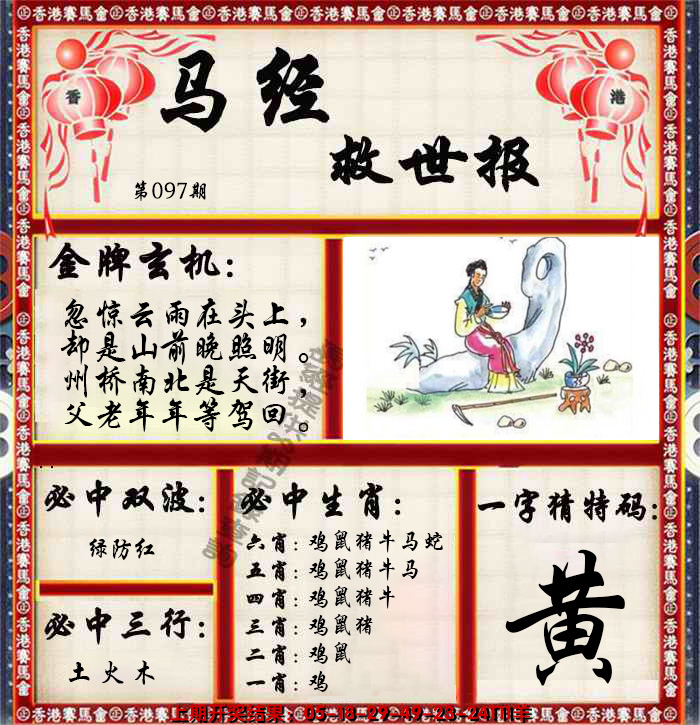 香港賽馬會
香
港
马经
救世报
第097期
金牌玄机：
忽惊云雨在头上，
却是山前晚照明。
州桥南北是天街，
父老年年等驾回。
必中双波：
绿防红
必中三行：
土火木
必中生肖：
六肖：鸡鼠猪牛马蛇
五肖：鸡鼠猪牛马
四肖：鸡鼠猪牛
三肖：鸡鼠猪
二肖：鸡鼠
一肖：鸡
一字猜特码：
黄
上期开奖结果：05-18-29-49-23-24T11:羊